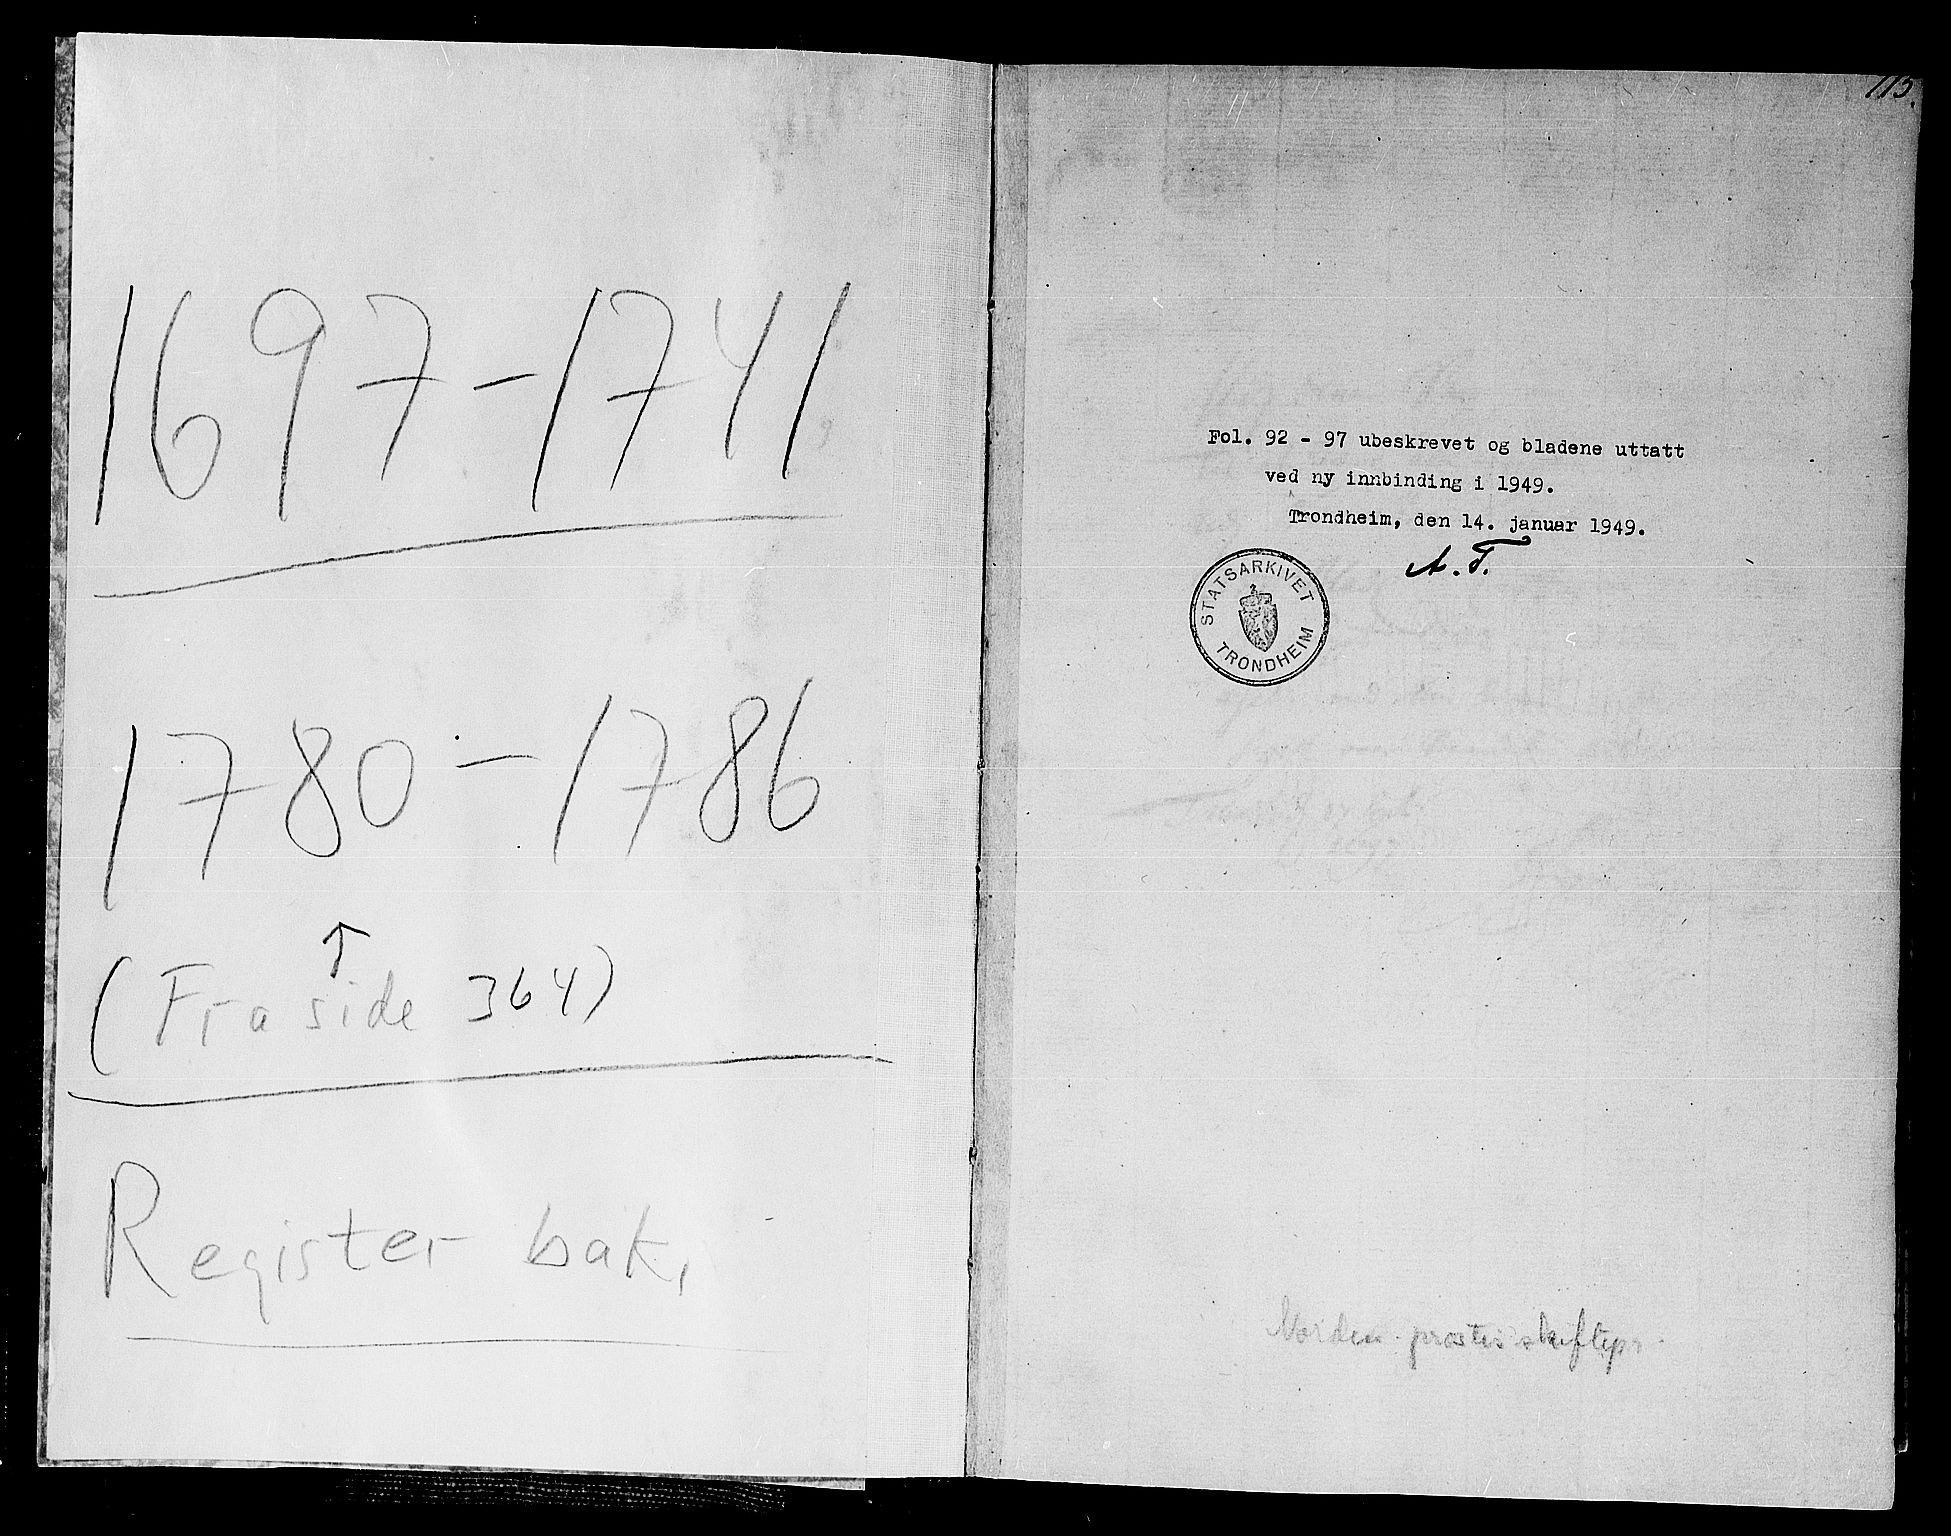 1697-1741
1780-1786
↑
(Fra side 364)
Register bak.
115.
Fol. 92 - 97 ubeskrevet og bladene uttatt
ved ny innbinding i 1949.
Trondheim, den 14. januar 1949.
A.T.
STATSARKIVET
TRONDHEIM
prostis skiftepr.